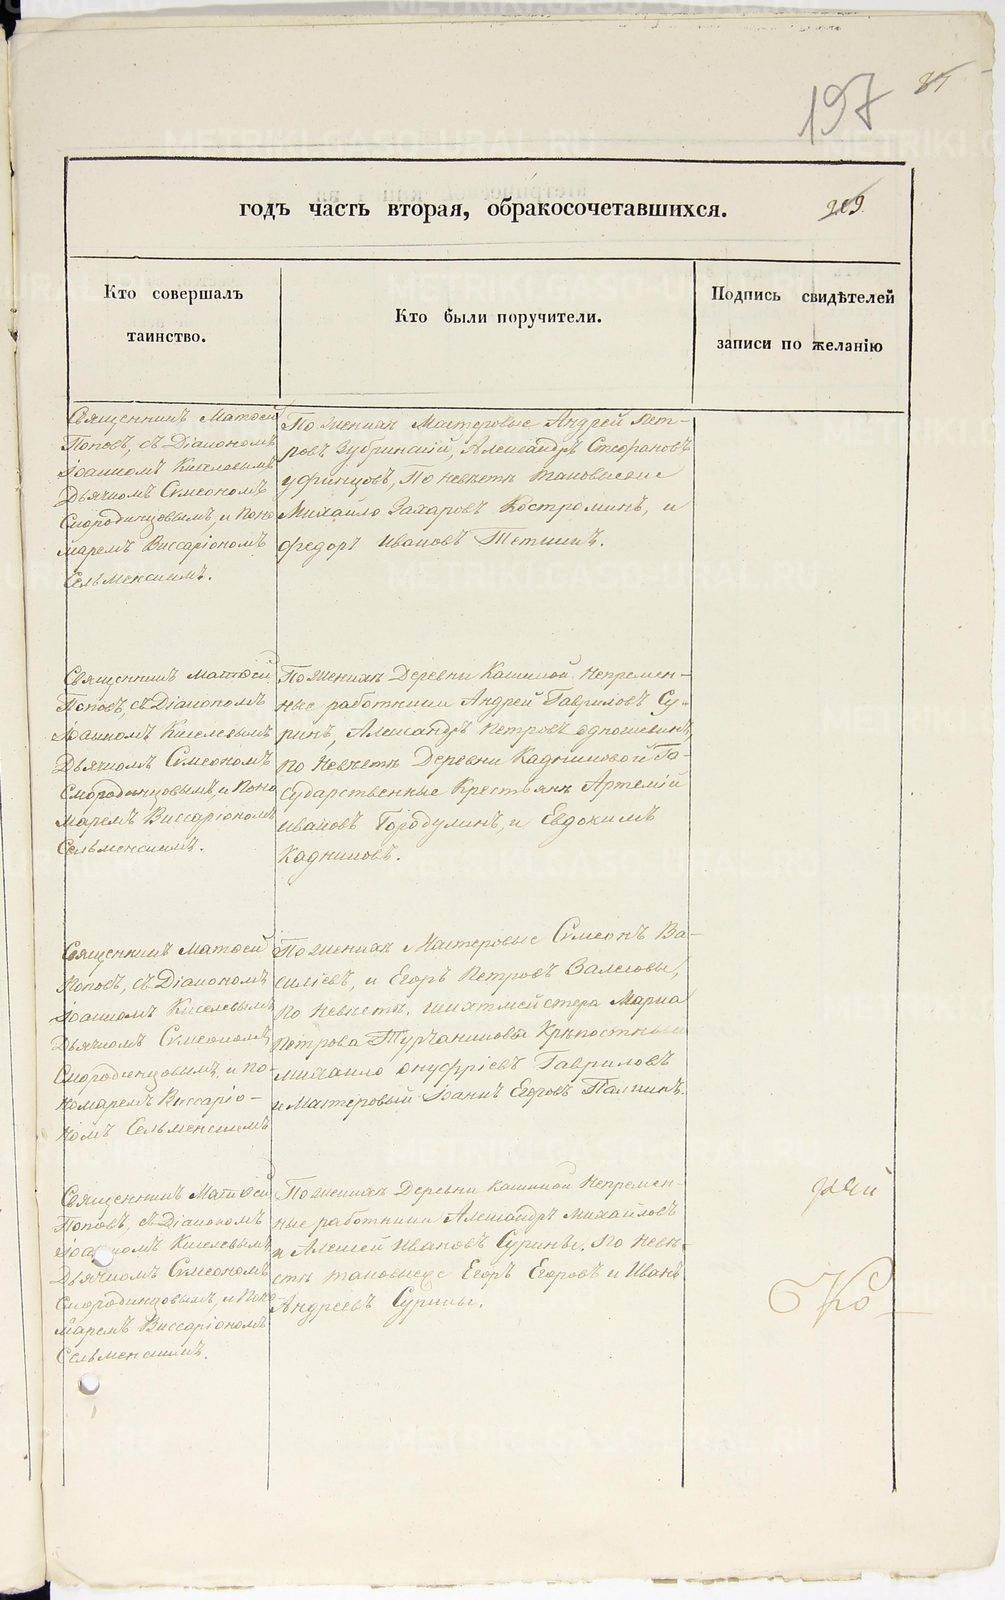 197
годъ часть вторая, обракосочетавшихся.
209.
Кто совершалъ
таинство.
Кто были поручители.
Подпись свидѣтелей
записи по желанію
Священникъ Матѳей
Поповъ, съ Діакономъ
Іоанномъ Киселевымъ
Дьячкомъ Сѵмеономъ
Смородинцовымъ, и Поно
маремъ Виссаріономъ
Сельменскимъ.
По женихѣ Мастеровые Андрей Пет-
ровъ Зубринскій, Александръ Стефановъ
Уфинцовъ, По невѣстѣ таковыеже
Михаило Захаровъ Костроминъ, и
Федоръ Ивановъ Тетинъ.
Священникъ Матѳей
Поповъ, съ Діакономъ
Іоанномъ Киселевымъ
Дьячкомъ Сѵмеономъ
Смородинцовымъ, и Поно
маремъ Виссаріономъ
Сельменскимъ.
По женихѣ Деревни Кашиной, Непремен-
ные работники Андрей Гавриловъ Су-
ринъ, Александръ Петровъ
по Невѣстѣ Деревни Кадниковой Го-
сударственные Крестьяне Артемій
Ивановъ Городулинъ, и Евдокимъ
Кадниковъ.
Священникъ Матѳей
Поповъ, съ Діакономъ
Іоанномъ Киселевымъ
Дьячкомъ Сѵмеономъ
Смородинцовымъ, и По-
номаремъ Виссаріо-
номъ Сельменскимъ
По женихѣ Мастеровые Сѵмеонъ Ва-
силіевъ, и Егоръ Петровъ
по Невѣстѣ, шихтмейстера Марка
Петрова Турчанинова Крѣпостный
Михаило Онуфріевъ Гавриловъ
и Мастеровый Іоаннъ Егоровъ Палкинъ.
Священникъ Матѳей
Поповъ, съ Діакономъ
Іоанномъ Киселевымъ
Дьячкомъ Сѵмеономъ
Смородинцовымъ, и Поно-
маремъ Виссаріономъ
Сельменскимъ.
По женихѣ Деревни Кашиной Непремен-
ные работники Александръ Михайловъ
и Алексей Ивановъ Сурины, по Невѣ-
стѣ таковыеже Егоръ Егоровъ и Иванъ
Андреевъ Сурины.